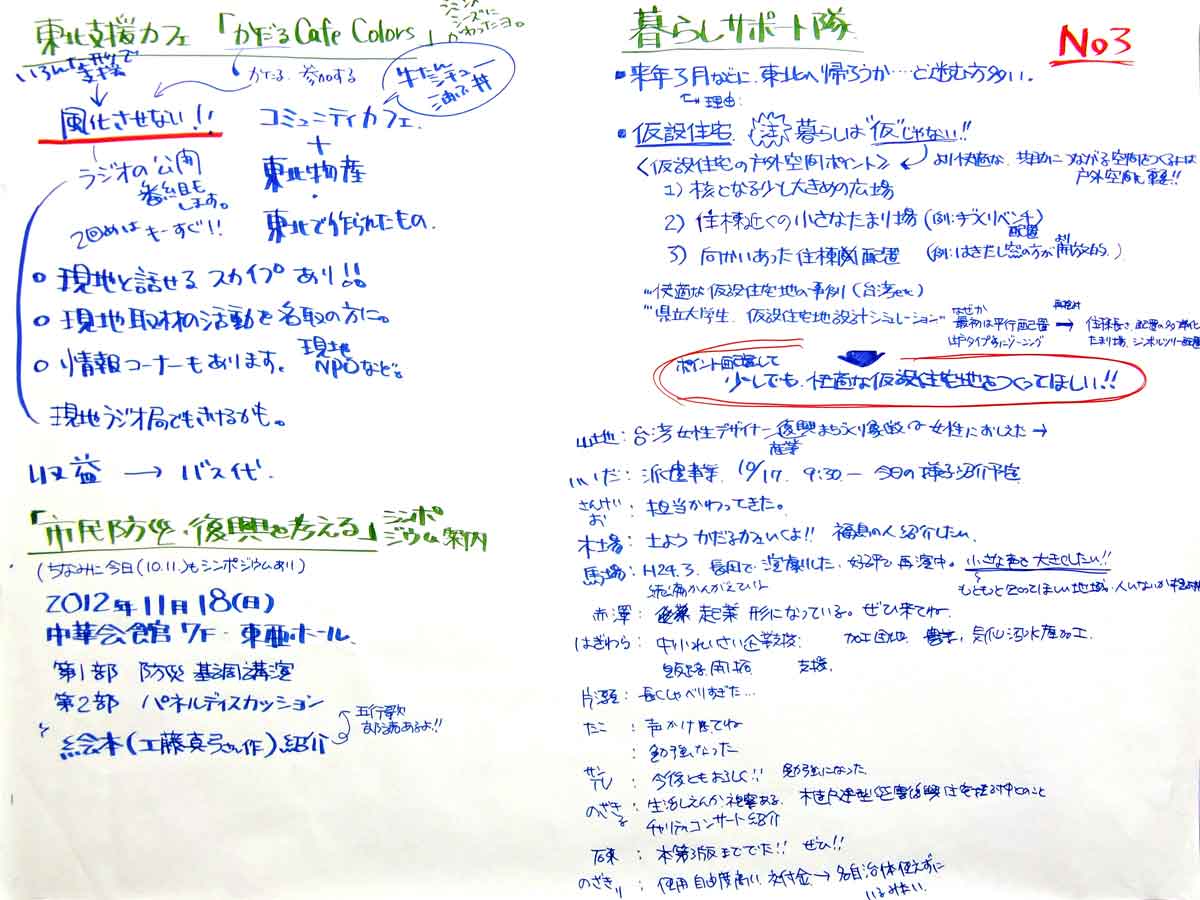 東北支援カフェ 「かだるCafe Colors」
いろんな形で支援
かたる、参加する
牛たんシチュー
風化させない!!
コミュニティカフェ
+
東北物産
・
東北で作られたもの
ラジオの公開番組もします。
2回めはもーすぐ!!
○ 現地と話せる スカイプあり!!
○ 現地取材の活動を名取の方に。
○ 情報コーナーもあります。 現地NPOなど。
現地ラジオ局でもきけるかも。
収益 → バス代
「市民防災・復興を考える」シンポジウム案内
(ちなみに今日(10.11.)もシンポジウムあり)
2012年11月18(日)
中華会館7F・東亜ホール
第1部 防災 基調講演
第2部 パネルディスカッション
絵本(工藤真弓さん作)紹介
五行歌
暮らしサポート隊
No3
・来年3月などに、東北へ帰ろうか…と悩む方多い。
理由:
・仮設住宅 暮らしは"仮"じゃない!!
<仮設住宅の戸外空間ポイント>
より快適な、共助につながる空間をつくるには
戸外空間も重要!!
1) 核となる少し大きめの広場
2) 住棟近くの小さなたまり場 (例:手づくりベンチ)
配置
3) 向かいあった住棟 配置 (例:はきだし窓の方が より 開放的。)
快適な仮設住宅地の事例 (台湾etc)
県立大学生、仮設住宅地設計シミュレーション
なぜか
最初は平行配置 → 住棟長さ、配置の多様化
たまり場、シンボルツリー配置
ポイント配置して
少しでも、快適な仮設住宅地をつくってほしい!!
山地: 台湾女性デザイナー 復興まちづくり 女性におしえた→
産業
いいだ: 派遣事業、10/17 9:30― 今日の様子紹介予定
さんけいお: 担当かわってきた。
木土場: 土よう かだるカフェいくよ!! 福島の人紹介したい
馬場: H24.3. 長田で 演劇した、好評で再演中。小さな声を大きくしたい!!
続編かんがえている
赤澤: 起業 形になっている。ぜひ来てね
はぎわら: 中小れいさい企業 加工団地 気仙沼水産加工
販路開拓 支援
片瀬: 長くしゃべりすぎた…
たこ: 声かけ てね
: 勉強なった
サンテレ: 今後ともよろしく!! 勉強になった
のざき: 生活しえん
チャリティコンサート紹介
石東: 本第3版まででた!! ぜひ!!
のざきり: 使用自由度高い 交付金→各自治体使えずに
いるみたい